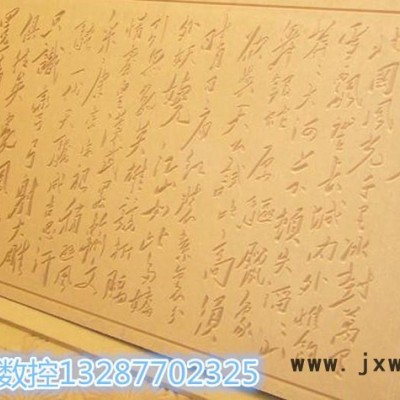 北国风光千里冰封万里
雪飘望长城内外惟余
莽莽大河上下顿失滔滔山
舞银蛇原驰蜡象
欲与天公试比高须
晴日看红装素裹
分外妖娆江山如此多娇
引无数英雄竞折腰
惜秦皇汉武略输文
采唐宗宋祖稍逊风
骚一代天骄成吉思汗
只识弯弓射大雕
俱往矣数风流
www.jxw
数控13287702325